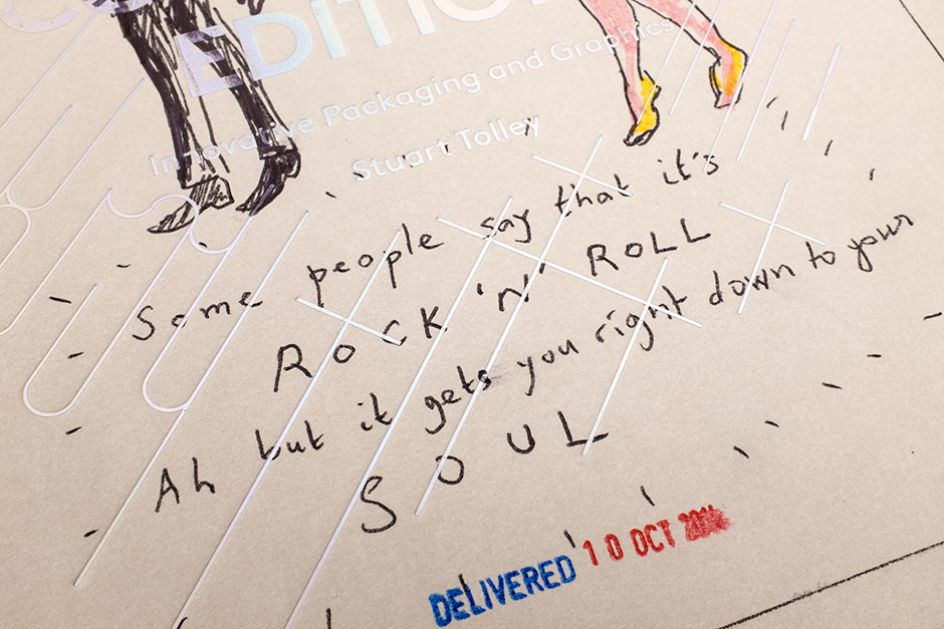 EDITION
Innovative Packaging and Graphics
Stuart Tolley
Some people say that it's
ROCK 'n' ROLL
Ah but it gets you right down to your
SOUL
DELIVERED 10 OCT